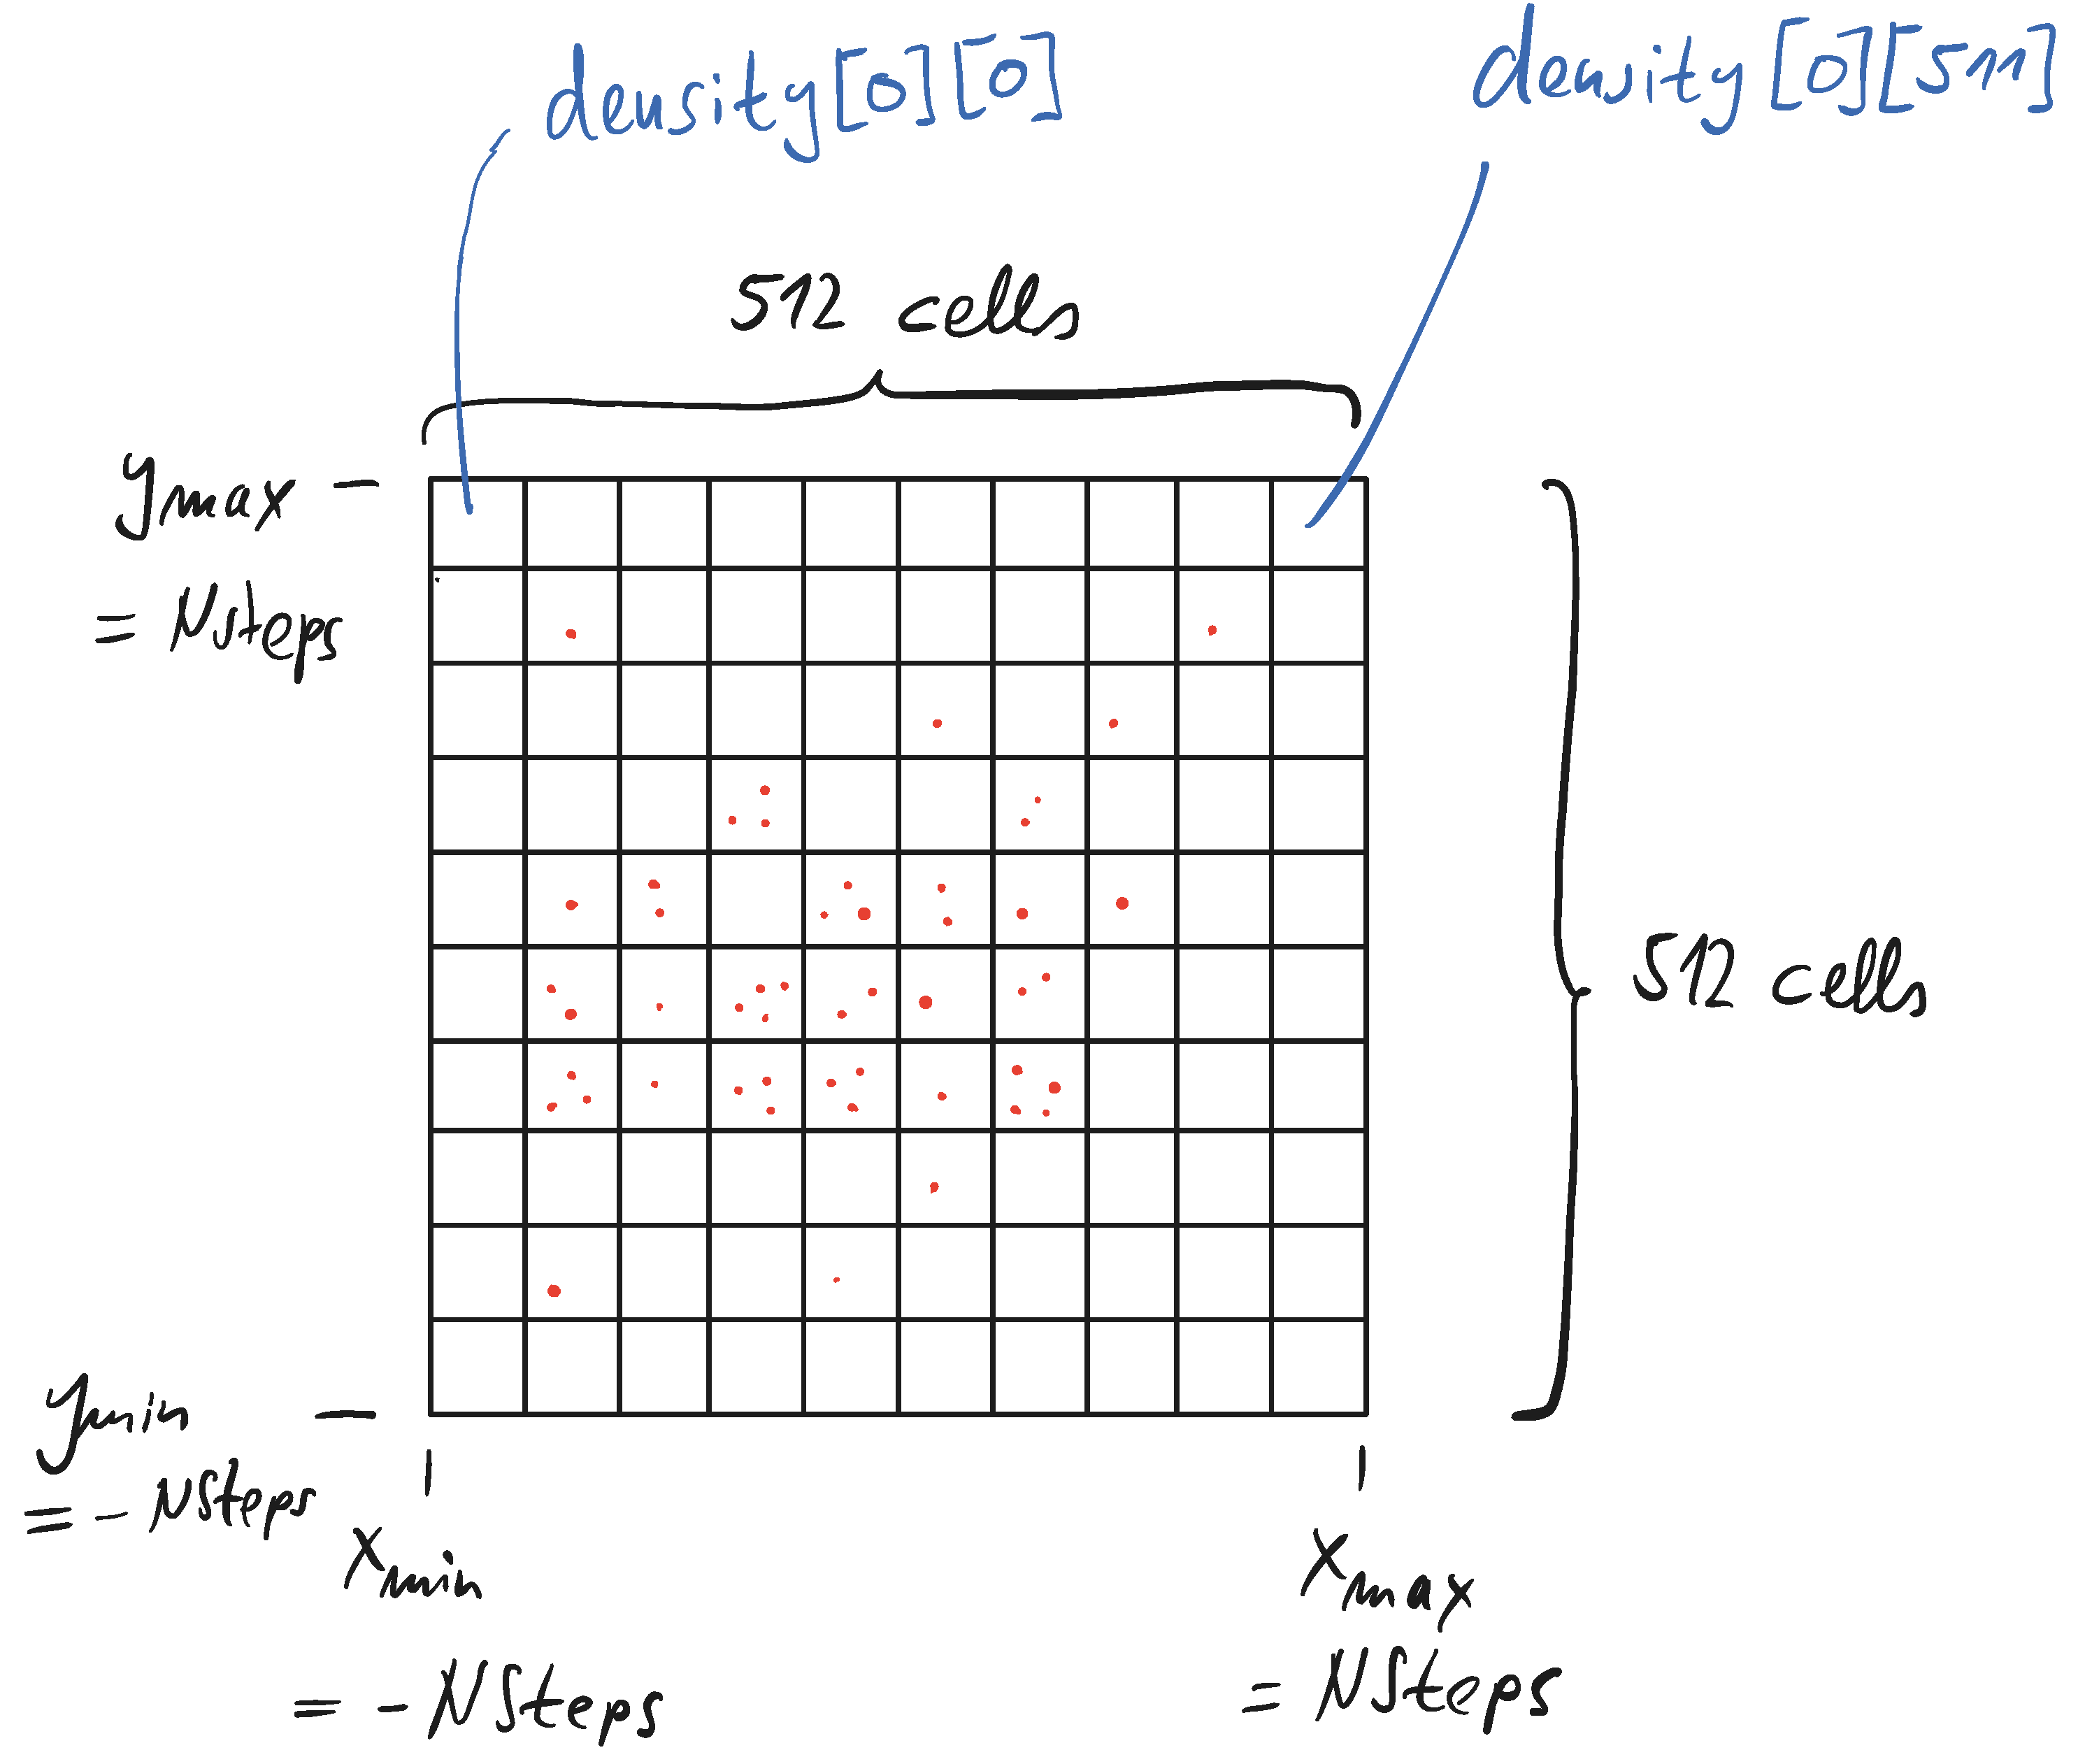 density[0][0]
density[0][511]
512 cells
ymax
= Nsteps
512 cells
ymin
= - NSteps
xmin
= - NSteps
xmax
= NSteps